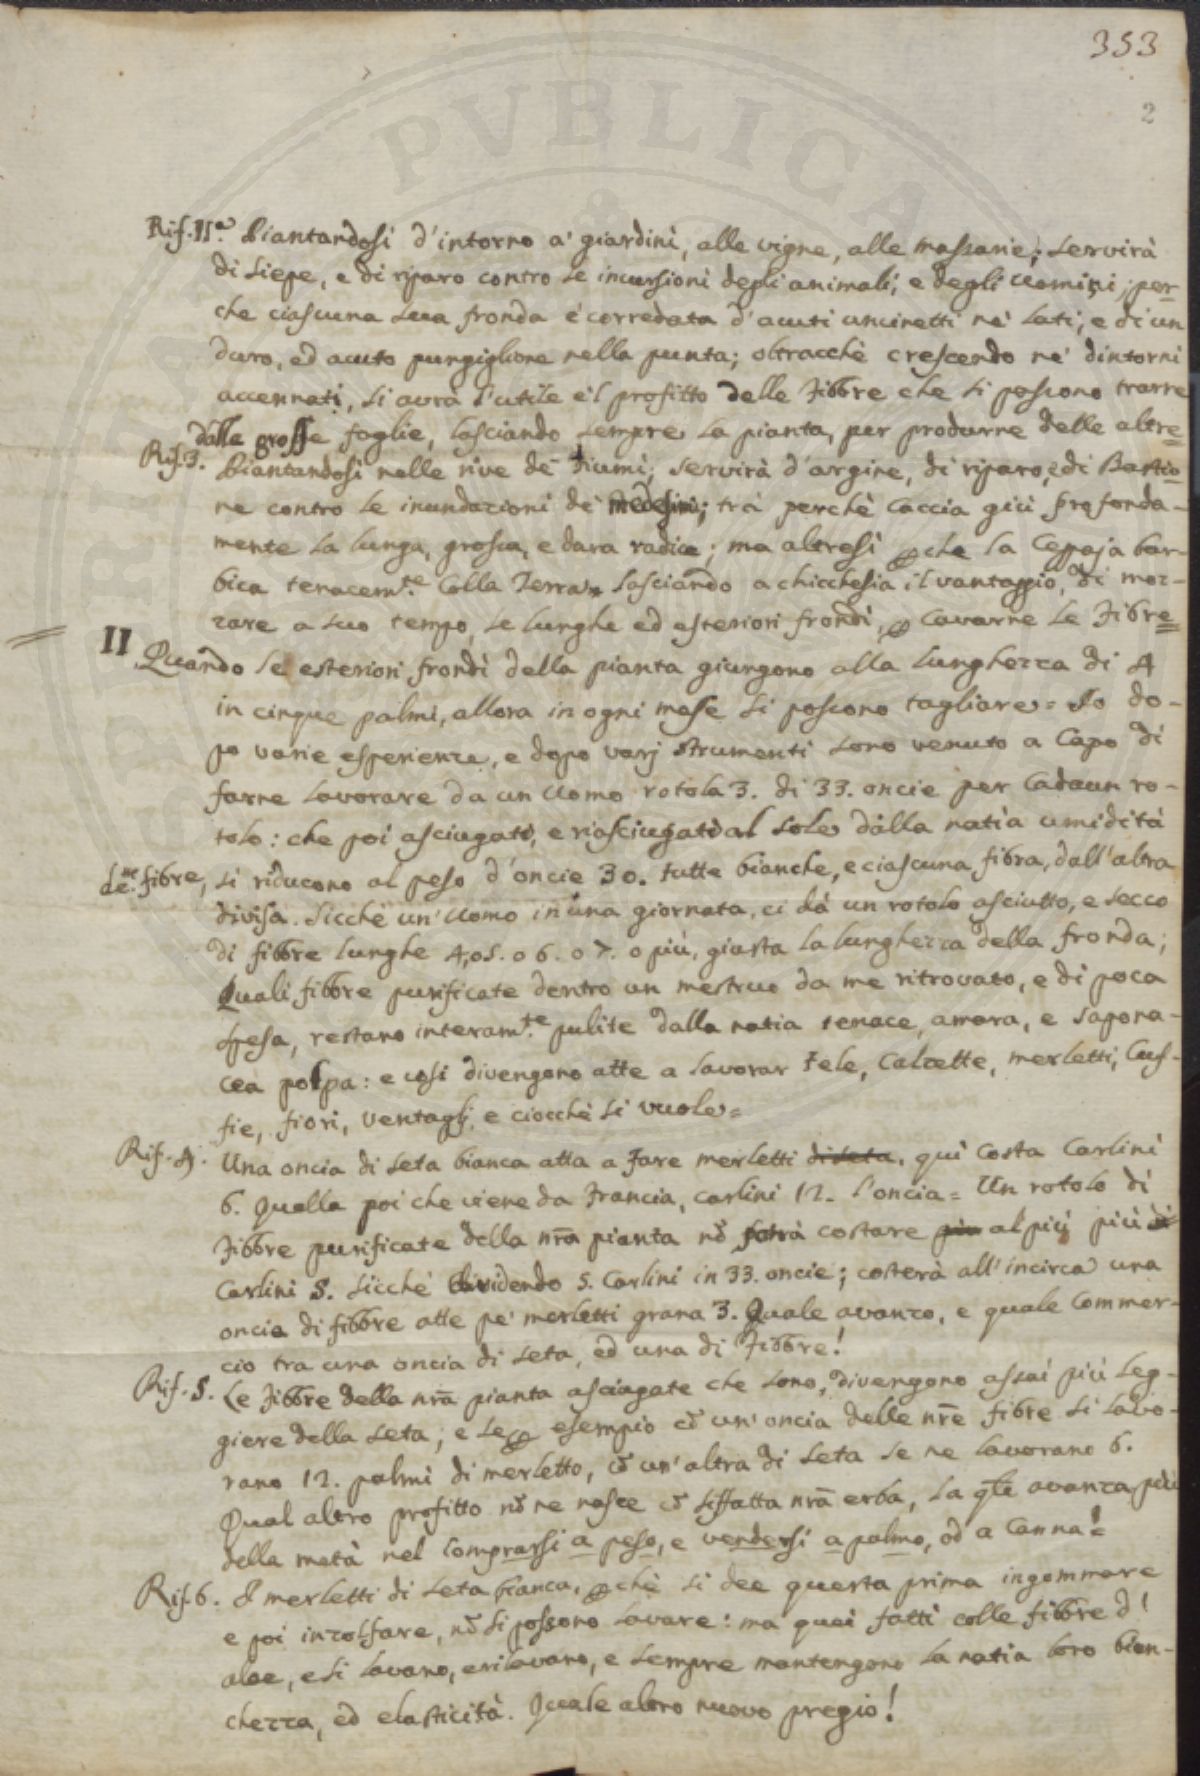 353
2
PVBLICA
Rif. IIa. Piantandosi d'intorno a' giardini, alle vigne, alle massarie; servirà
di siepe, e di riparo contro le incursioni degli animali, e degli uomini; per-
che ciascuna sua fronda è corredata d'acuti uncinetti ne' lati, e di un
duro, ed acuto pungiglione nella punta; oltracchè crescendo ne' dintorni
accennati, si avrà l'utile e'l profitto delle Fibbre che si possono trarre
dalle grosse foglie, lasciando sempre la pianta, per produrne delle altre=
Rif. 3. Piantandosi nelle rive de' Fiumi, servirà d'argine, di riparo, e di Bastio-
ne contro le inundazioni de' medesimi; trà perchè caccia giù profonda-
mente la lunga, grossa, e dura radice; ma altresì pche la Ceppaja bar-
bica tenacem.te Colla Terra, lasciando a chicchesia il vantaggio, di moz-
zare a suo tempo le lunghe ed esteriori frondi, p cavarne le Fibre=
II Quando le esteriori frondi della pianta giungono alla lunghezza di 4
in cinque palmi, allora in ogni mese si possono tagliare= Io do-
po varie esperienze, e dopo varj strumenti sono venuto a Capo di
farne lavorare da un Uomo rotola 3. di 33. oncie per Cadaun ro-
tolo: che poi asciugati, e riasciugati al sole dalla natia umidità
de.ne fibre, si riducono al peso d'oncie 30. tutte bianche, e ciascuna fibra, dall'altra
divisa. Sicchè un'Uomo in una giornata, ci dà un rotolo asciutto, e secco
di fibbre lunghe 4, o 5. o 6. o 7. o più, giusta la lunghezza della fronda;
Quali fibbre purificate dentro un mestruo da me ritrovato, e di poca
spesa, restano interam.te pulite dalla natia tenace, amara, e sapona-
cea polpa: e così divengono atte a lavorar Tele, Calzette, merletti, Cuf-
fie, fiori, ventagli, e ciocchè si vuole=
Rif. 4. Una oncia di seta bianca atta a fare merletti di seta, quì Costa Carlini
6. Quella poi che viene da Francia, carlini 12. l'oncia= Un rotolo di
Fibbre purificate della nrã pianta nõ potrà costare più al più più di
Carlini 5. Sicchè dividendo 5. Carlini in 33. oncie; costerà all'incirca una
oncia di fibbre atte pe' merletti grana 3. Quale avanzo, e quale Commer-
cio tra una oncia di seta, ed una di Fibbre!
Rif. 5. Le Fibbre della nrã pianta asciugate che sono, divengono assai più leg-
giere della seta; e se p esempio cõ un'oncia delle nrẽ fibre si lavo-
rano 12. palmi di merletto, cõ un'altra di seta se ne lavorano 6.
Qual altro profitto nõ ne nasce cõ siffatta nrã erba, la qle avanza più
della metà nel comprarsi a peso, e vendersi a palmo, od a Canna!=
Rif. 6. I merletti di seta bianca, pchè si dee questa prima ingommare
e poi inzolfare, nõ si possono lavare: ma quei fatti colle fibbre d'
aloe, e si lavano, e rilavano, e sempre mantengono la natia loro bian-
chezza, ed elasticità. Quale altro nuovo pregio!